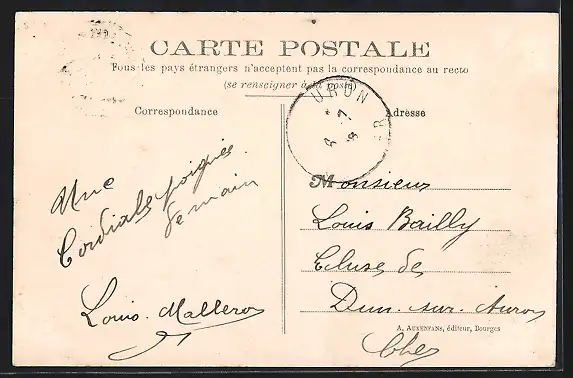 CARTE POSTALE
Tous les pays étrangers n'acceptent pas la correspondance au recto
(se renseigner à la poste)
Correspondance
Adresse
URON
Une
Cordiale poignée
de main
Louis Mallero
Monsieur
Louis Bailly
Ecluse de
Dun-sur-Auron
A. AUXENFANS, éditeur, Bourges
Cher